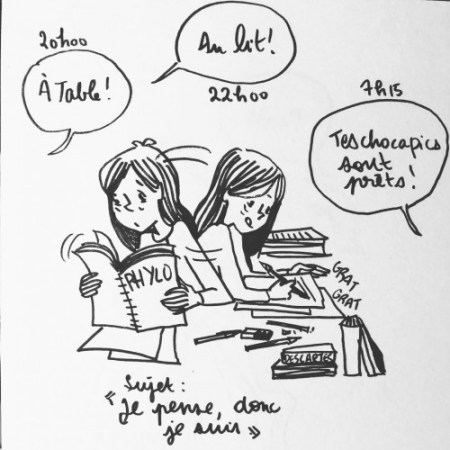 20h00
À Table!
Au lit!
22h00
7h15
Tes chocapics
sont
prêts!
PHYLO
GRAT
GRAT
DESCARTES
Sujet:
"Je pense, donc
je suis"